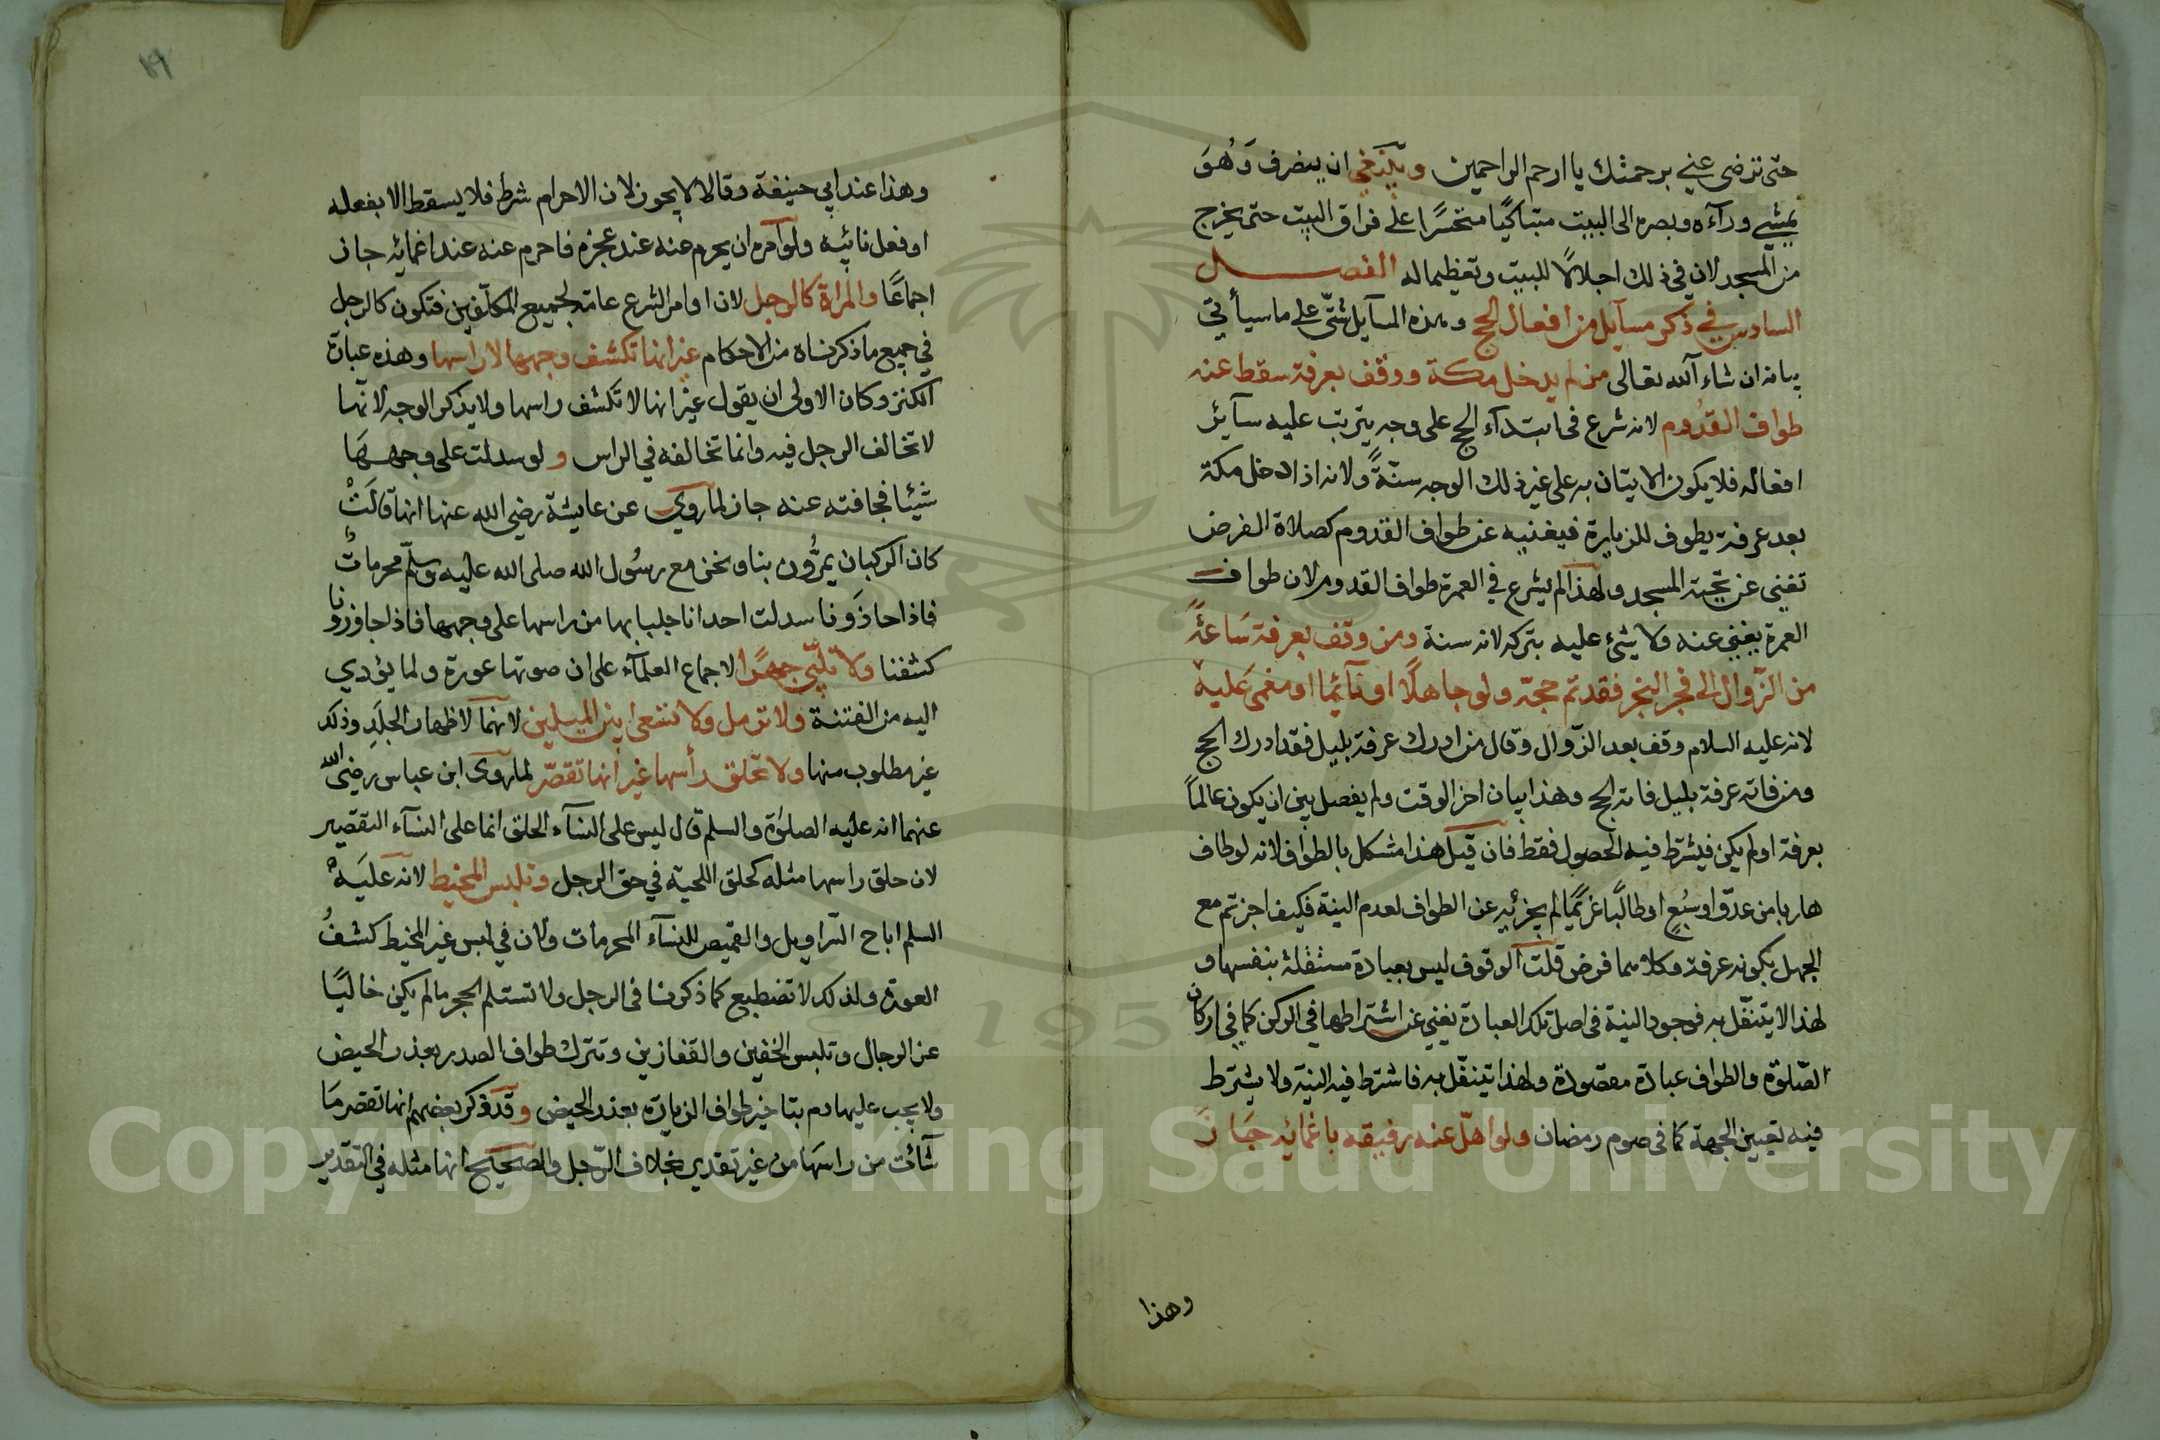 حتى ترضى عني برحمتك يا ارحم الراحمين وينبغي ان ينصرف وَهُوَ
يمشي ورآءه وبصره الى البيت متباكيًا متحسرًا على فراق البيت حتى يخرج
من المسجد لان في ذلك اجلالًا للبيت وتعظيما له الفصل
السادس في ذكر مسآيل من افعال الحج وهذه المسآيل شتّى على ما سيأتي
بيانه ان شاء الله تعالى من لم يدخل مكة ووقف بعرفة سقط عنه
طواف القُدُوم لانه شرع فى ابتدآء الحج على وجه يترتب عليه سآئر
افعاله فلا يكون الاتيان به على غير ذلك الوجه سنّةً ولانه اذا دخل مكة
بعد عرفة يطوف للزيارة فيغنيه عن طواف القدوم كصلاة الفرض
تغنى عن تحية المسجد ولهذا لم يشرع في العمرة طواف القدوم لان طواف
العمرة يغني عنه ولا شئ عليه بتركه لانه سنة ومن وقف بعرفة سَاعَةً
من الزّوال الى فجر النحر فقد تم حجّه ولو جاهلًا او نآئما او مغمى عَليه
لانه عليه السلام وقف بعد الزّوال وقال من ادرك عرفة بليل فقد ادرك الحج
ومن فاته عرفة بليل فاته الحج وهذا بيان اخر الوقت ولم يفصل بين ان يكون عالمًا
بعرفة او لم يكن فيشترط فيه الحصول فقط فان قيل هذا مشكل بالطواف لانه لو طاف
هاربا من عدوّ او سَبُعٍ او طالبًا غريمًا لم يجزئيه عن الطواف لعدم النية فكيف اجزتم مع
الجهل بكونه عرفة وكلاهما فرض قلت الوقوف ليس بعبادة مستقلة بنفسها و
لهذا لا يتنفّل به فوجود النية فى اصل تلك العبادة يغني عن اشتراطها في الركن كما في اركان
الصّلوة والطواف عبادة مقصودة ولهذا يتنفّل به فاشترط فيه النية ولا يشترط
فيه تعيين الجهة كما فى صوم رمضان ولو اهلّ عنه رفيقه باغمائه جَازَ
وهذا
١٩
وهذا عند ابي حنيفة وقالا لا يجوز لان الاحرام شرط فلا يسقط الا بفعله
او فعل نائبه ولو امره ان يحرم عنه عند عجزه فاحرم عنه عند اغمائه جاز
اجماعًا والمراة كالرجل لان اوامر الشرع عامة لجميع المكلّفين فتكون كالرجل
في جميع ما ذكرناه من الاحكام غير انها تكشف وجهها لا رأسها وهذه عبارة
الكنز وكان الاولى ان يقول غير انها لا تكشف راسها ولا يذكر الوجه لانّها
لا تخالف الرجل فيه وانما تخالفه في الراس ولو سدلت على وجههَا
شيئا فجافته عنه جاز لما روي عن عايشة رضي الله عنها انها قالَتْ
كان الركبان يمرُّون بنا ونحن مع رسُول الله صلى الله عليه وسلّم محرماتٌ
فاذا حاذَونا سدلت احدانا جلبابها من راسها على وجهها فاذا جاوزونا
كشفنا ولا تلبّي جهرًا لاجماع العلمآء على ان صوتها عورة ولما يؤدي
اليه من الفتنة ولا ترمل ولا تسعى بين الميلين لانهمآ لاظهار الجلَدِ وذلك
غير مطلوب منها ولا تحلق رأسها غير انها تقصّر لما روى ابن عباس رضي الله
عنهما انه عليه الصلوٰة والسلم قال ليس على النسآء الحلق انما على النسآء التقصير
لان حلق راسها مثله كحلق اللحية في حق الرجل وتلبس المخيط لانه عَليَه
السلم اباح السّراويل والقميص للنسآء المحرمات ولان في لبس غير المخيط كشفُ
العورة ولذلك لا تضطبع كما ذكرنا فى الرجل ولا تستلم الحجر ما لم يكن خاليًا
عن الرجال وتلبس الخفين والقفازين وتترك طواف الصدر بعذر الحيض
ولا يجب عليها دم بتاخير طواف الزيارة بعذر الحيض وقد ذكر بعضهم انها تقصر مَا
شآئت من راسهَا من غير تقدير بخلاف الرّجل والصحيح انها مثله في التقدير
Copyright © King Saud University
1957